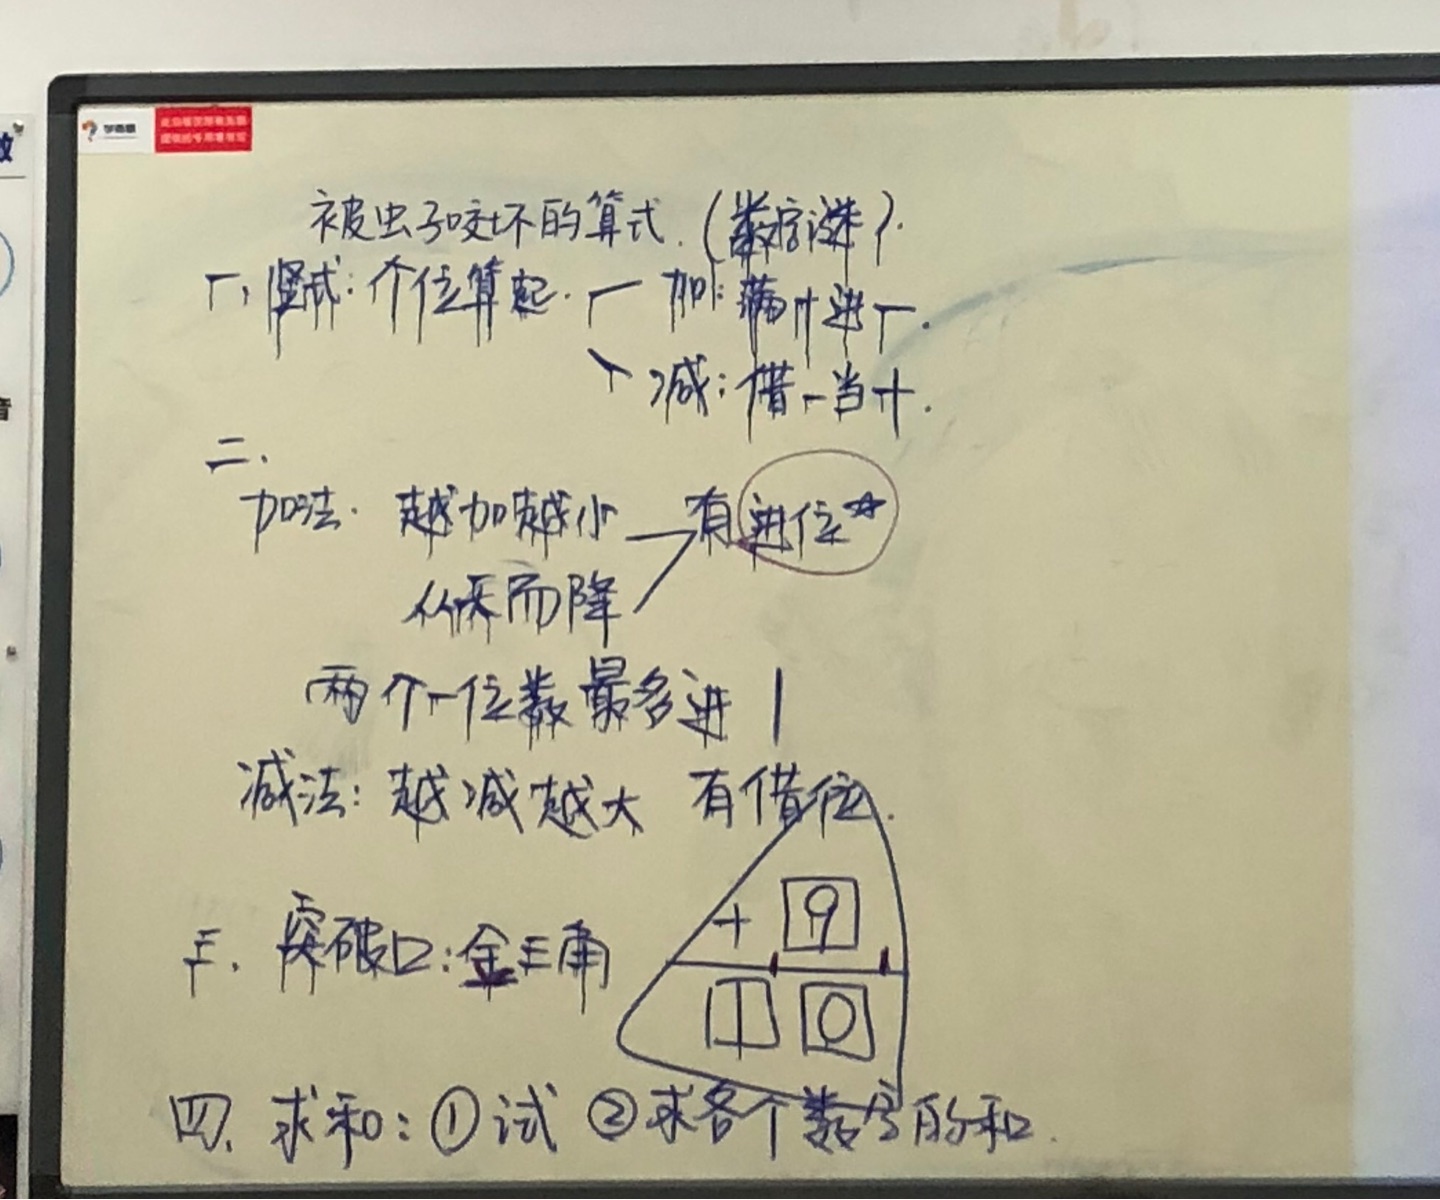 学而思
被虫子咬坏的算式.(数字谜).
一、竖式:个位算起. 加:满十进一.
减:借一当十.
二.
加法. 越加越小 有进位☆
从天而降
两个一位数最多进1
减法:越减越大 有借位.
三、突破口:金三角
+ 9
1 0
四、求和:①试 ②求各个数字的和.